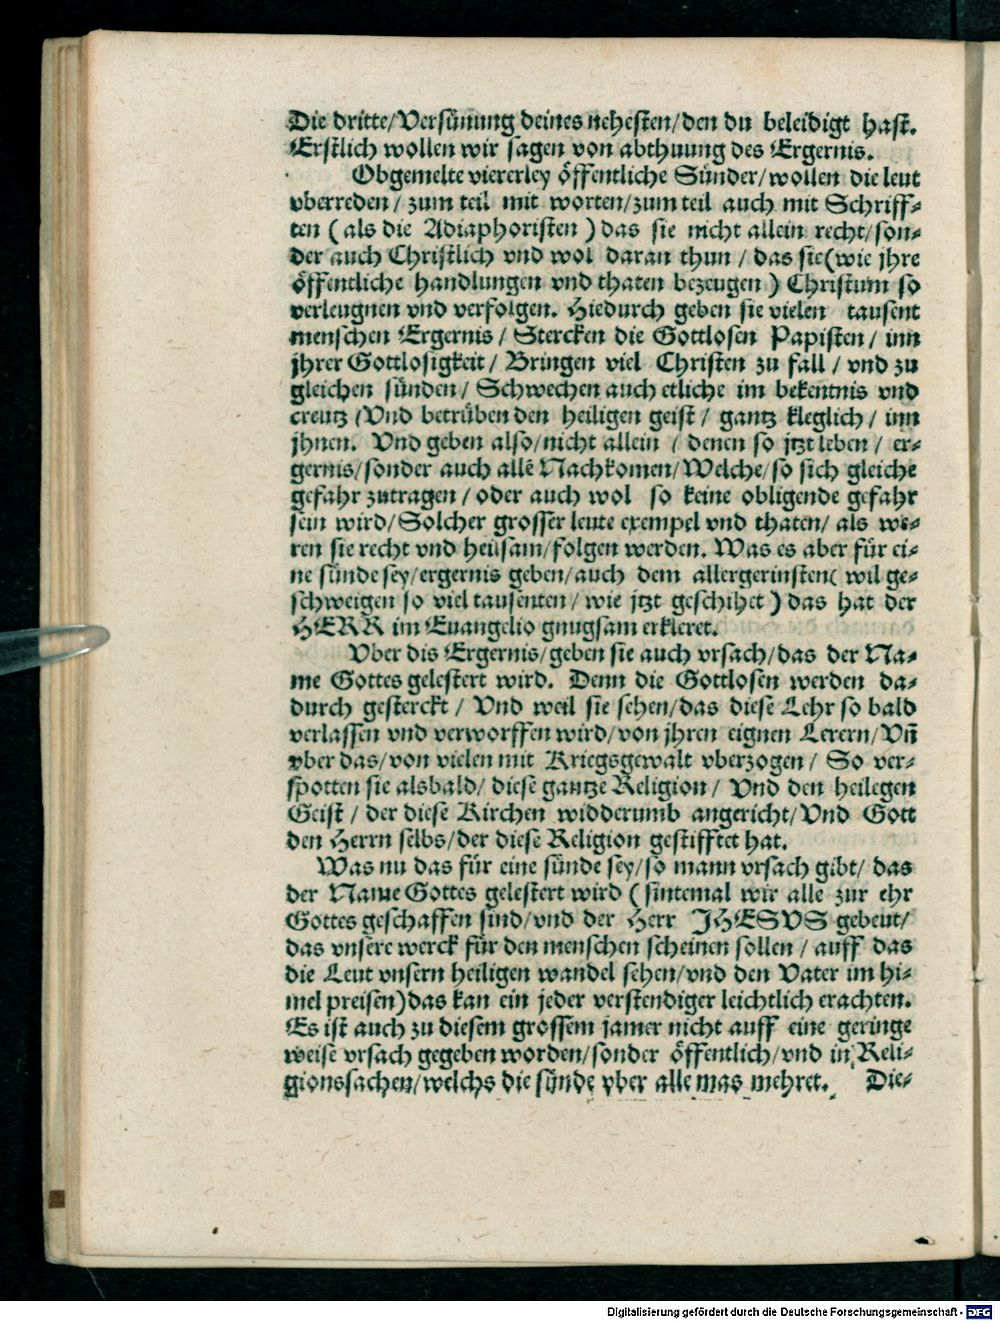 Die dritte/Versünung deines nehesten/den du beleidigt hast.
Erstlich wollen wir sagen von abthuung des Ergernis.
Obgemelte viererley öffentliche Sünder/wollen die leut
vberreden/ zum teil mit worten/zum teil auch mit Schriff-
ten (als die Adiaphoristen) das sie nicht allein recht/son-
der auch Christlich vnd wol daran thun / das sie (wie jhre
öffentliche handlungen vnd thaten bezeugen) Christum so
verleugnen vnd verfolgen. Hiedurch geben sie vielen tausent
menschen Ergernis/ Stercken die Gottlosen Papisten/ inn
jhrer Gottlosigkeit/ Bringen viel Christen zu fall/ vnd zu
gleichen sünden/ Schwechen auch etliche im bekentnis vnd
creutz/Vnd betrüben den heiligen geist/ gantz kleglich/ inn
jhnen. Vnd geben also/nicht allein / denen so jtzt leben/ er-
gernis/sonder auch allē Nachkomen/Welche/so sich gleiche
gefahr zutragen/oder auch wol so keine obligende gefahr
sein wird/Solcher grosser leute exempel vnd thaten/ als we-
ren sie recht vnd heilsam/folgen werden. Was es aber für ei-
ne sünde sey/ergernis geben/auch dem allergerinsten( wil ge-
schweigen so viel tausenten/ wie jtzt geschihet) das hat der
HERR im Euangelio gnugsam erkleret.
Vber dis Ergernis/geben sie auch vrsach/das der Na-
me Gottes gelestert wird. Denn die Gottlosen werden da-
durch gesterckt/ Vnd weil sie sehen/das diese Lehr so bald
verlassen vnd verworffen wird/von jhren eignen Lerern/Vn̄
vber das/von vielen mit Kriegsgewalt vberzogen/ So ver-
spotten sie alsbald/ diese gantze Religion/ Vnd den heilegen
Geist/ der diese Kirchen widderumb angericht/Vnd Gott
den Herrn selbs/der diese Religion gestifftet hat.
Was nu das für eine sünde sey/so mann vrsach gibt/ das
der Name Gottes gelestert wird (sintemal wir alle zur ehr
Gottes geschaffen sind/vnd der Herr JHESVS gebeut/
das vnsere werck für den menschen scheinen sollen / auff das
die Leut vnsern heiligen wandel sehen/vnd den Vater im hi-
mel preisen)das kan ein jeder verstendiger leichtlich erachten.
Es ist auch zu diesem grossem jamer nicht auff eine geringe
weise vrsach gegeben worden/sonder öffentlich/vnd in Reli-
gionssachen/welchs die sünde vber alle mas mehret. Die-
Digitalisierung gefördert durch die Deutsche Forschungsgemeinschaft - DFG